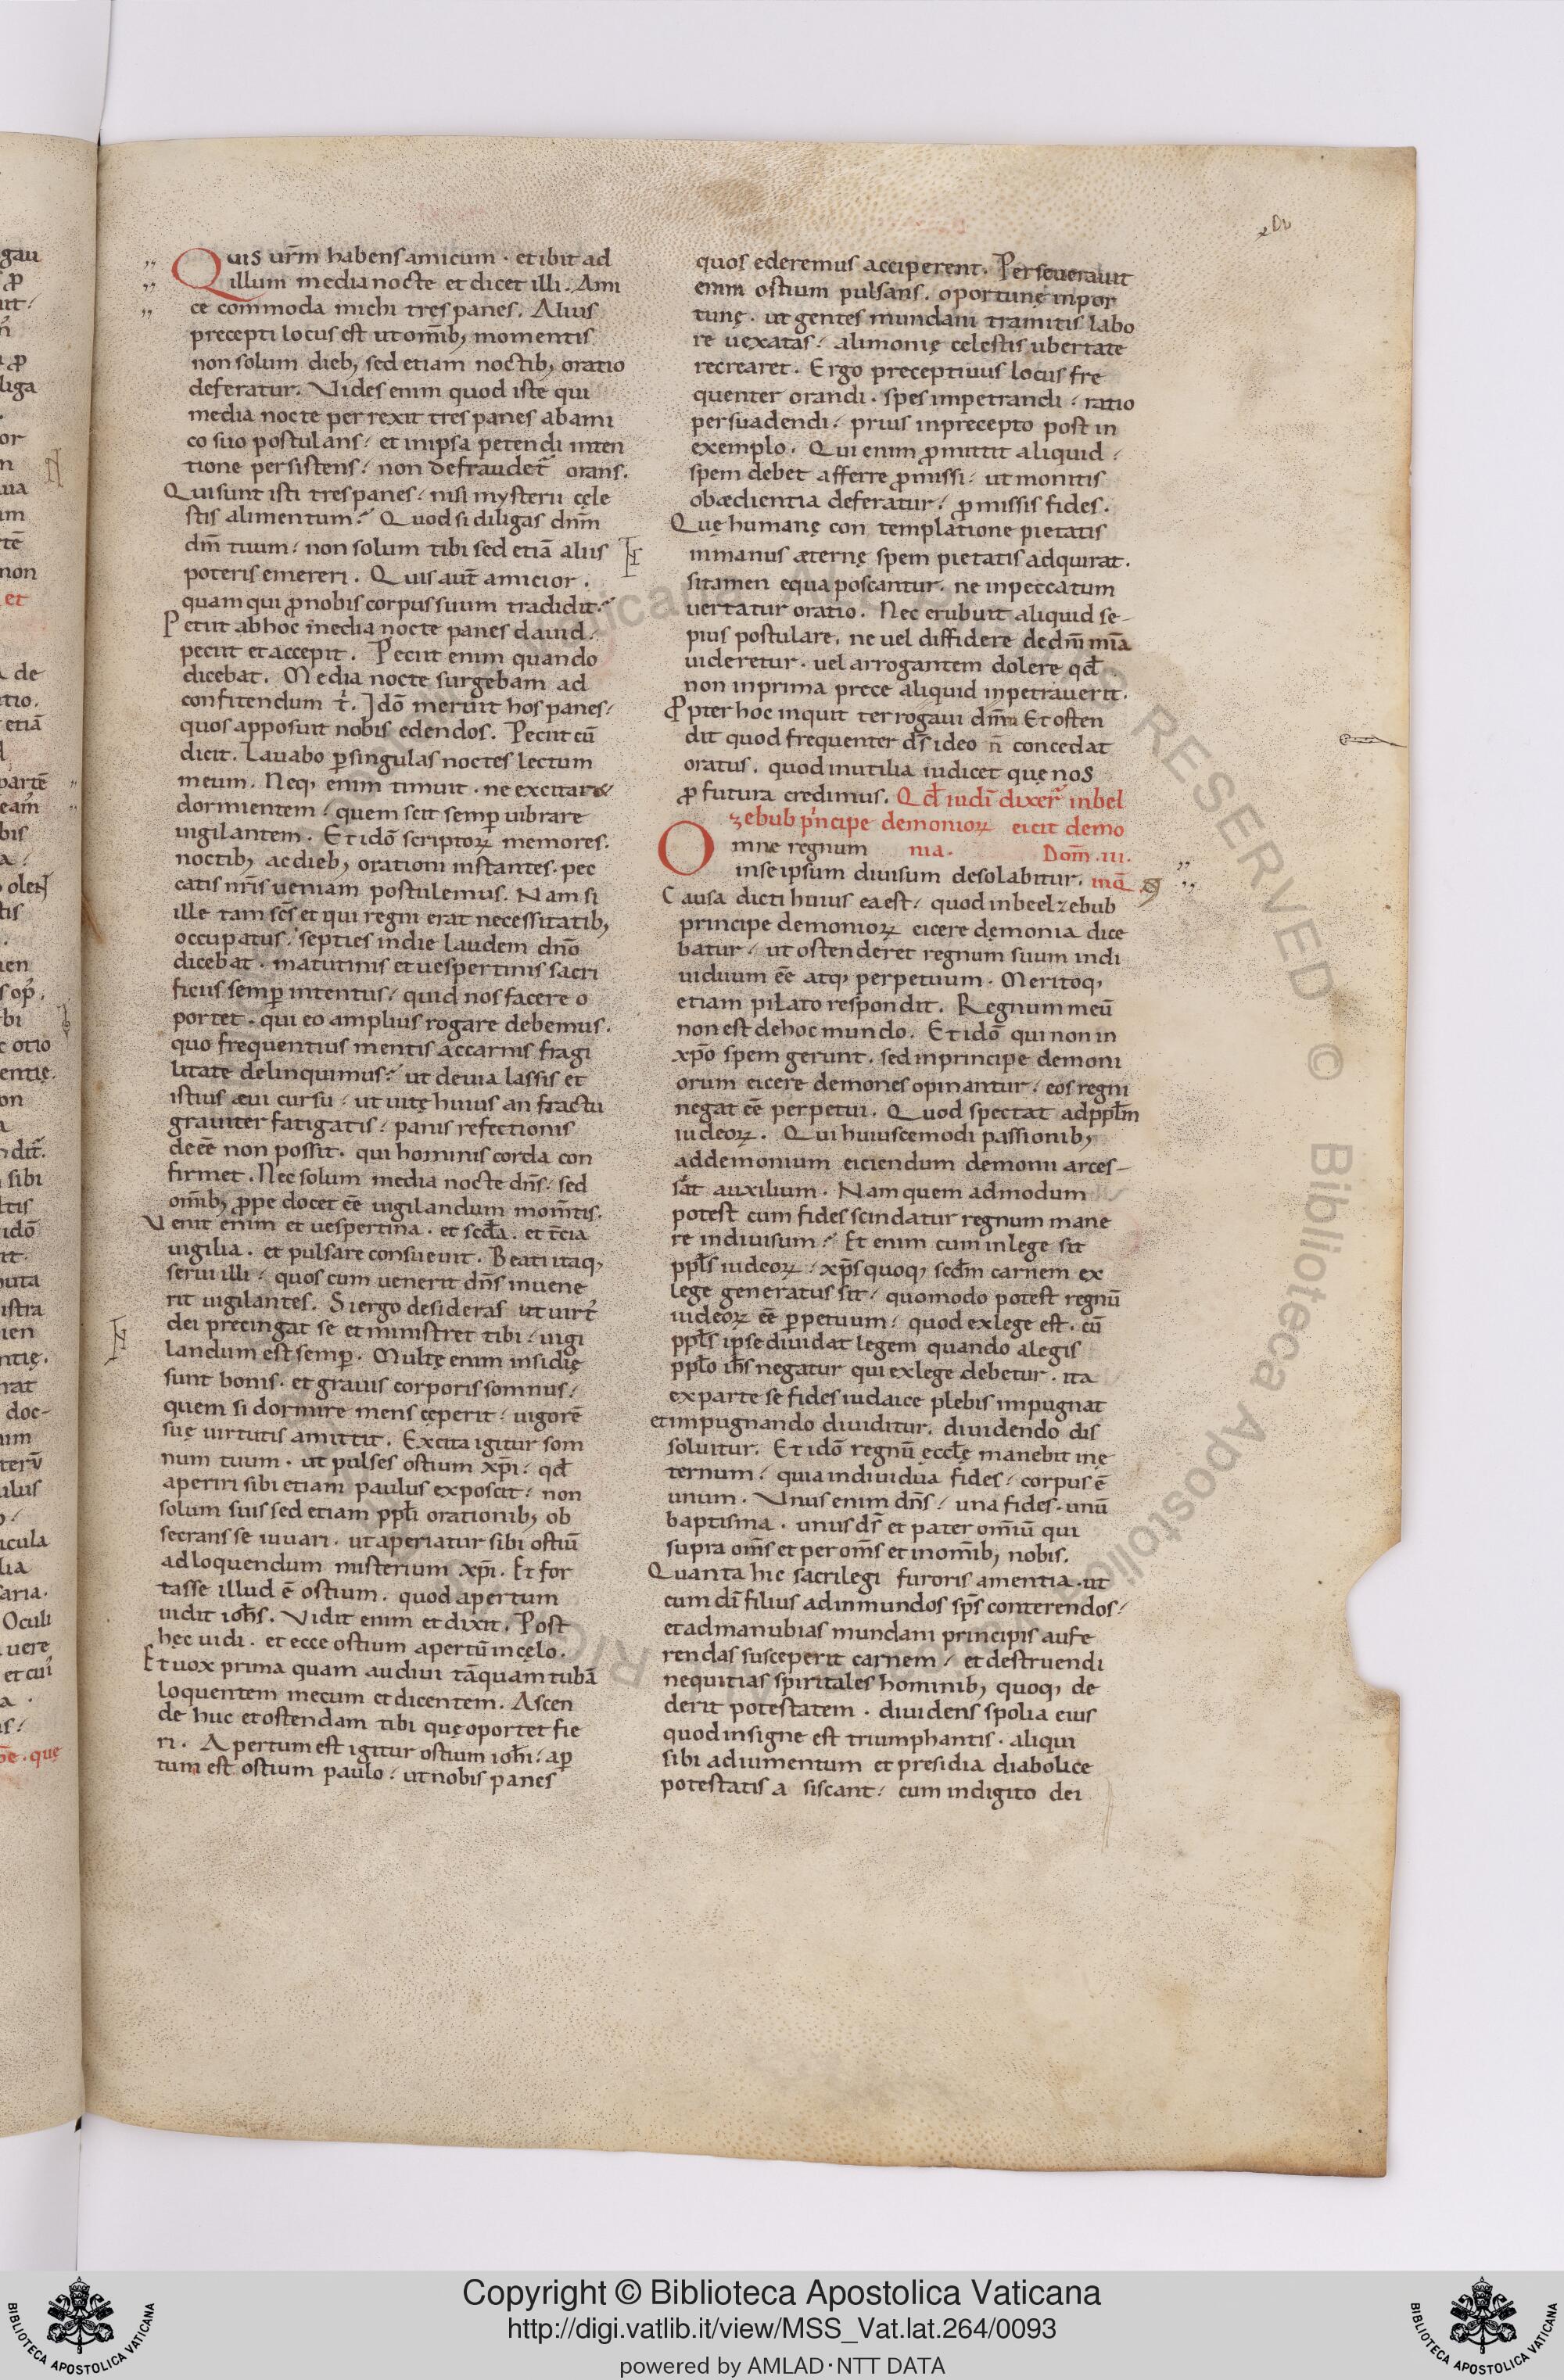 Quis ur̄m habens amicum · et ibit ad
illum media nocte et dicet illi . Ami
ce commoda michi tres panes . Alius
precepti locus est ut om̄ib; momentis
non solum dieb; sed etiam noctib; oratio
deferatur . Vides enim quod iste qui
media nocte perrexit tres panes ab ami
co suo postulans / et in ipsa petendi inten
tione persistens / non defraudet̄ orans .
Qui sunt isti tres panes / nisi mysterii cęle
stis alimentum / Quod si diligas dnm̄
dm̄ tuum / non solum tibi sed etiā aliis
poteris emereri . Quis aut̄ amicior .
quam qui ꝓ nobis corpus suum tradidit /
Petiit ab hoc media nocte panes dauid /
peciit et accepit . Peciit enim quando
dicebat . Media nocte surgebam ad
confitendum t̄ . Idō meruit hos panes /
quos apposuit nobis edendos . Peciit cū
dicit . Lauabo ꝑ singulas noctes lectum
meum . Neq; enim timuit · ne excitaret
dormientem / quem scit semꝑ uibrare
uigilantem . Et idō scriptoꝝ memores .
noctib; ac dieb; orationi instantes · pec
catis nr̄is ueniam postulemus . Nam si
ille tam sc̄s et qui regni erat necessitatib;
occupatus / septies in die laudem dnō
dicebat · matutinis et uespertinis sacri
ficiis semꝑ intentus / quid nos facere o
portet · qui eo amplius rogare debemus .
quo frequentius mentis ac carnis fragi
litate delinquimus / ut deuia lassis et
istius æui cursu / ut uitę huius anfractu
grauiter fatigatis / panis refectionis
deeē non possit · qui hominis corda con
firmet . Nec solum media nocte dn̄s / sed
om̄ib; ꝓpe docet eē uigilandum mom̄tis .
Venit enim et uespertina · et scd̄a . et tc̄ia
uigilia · et pulsare consueuit . Beati itaq;
serui illi / quos cum uenerit dn̄s inuene
rit uigilantes . Si ergo desideras ut uirt̄
dei precingat se et ministret tibi / uigi
landum est semꝑ . Multę enim insidię
sunt bonis · et grauis corporis somnus /
quem si dormire mens cęperit / uigorē
suę uirtutis amittit . Excita igitur som
num tuum · ut pulses ostium xp̄i / qd̄
aperiri sibi etiam paulus exposcit / non
solum suis sed etiam ppl̄i orationib; ob
secrans se iuuari . ut aperiatur sibi ostiū
ad loquendum misterium xp̄i . Et for
tasse illud ē ostium . quod apertum
uidit ioh̄s . Vidit enim et dixit . Post
hęc uidi . et ecce ostium apertū in cęlo .
Et uox prima quam audiui tāquam tubā
loquentem mecum et dicentem . Ascen
de huc et ostendam tibi quę oportet fie
ri . Apertum est igitur ostium ioh̄i / aꝑ
tum est ostium paulo / ut nobis panes
quos ederemus acciperent . Perseuerauit
enim ostium pulsans . oportunę inpor
tunę · ut gentes mundani tramitis labo
re uexatas / alimonię celestis ubertate
recrearet . Ergo preceptiuus locus fre
quenter orandi · spes impetrandi / ratio
persuadendi / prius in precepto post in
exemplo . Qui enim ꝓmittit aliquid /
spem debet afferre ꝓmissi / ut monitis
obædientia deferatur / ꝓmissis fides .
Quę humanę contemplatione pietatis
inmanus æternę spem pietatis adquirat .
si tamen equa poscantur . ne in peccatum
uertatur oratio . Nec erubuit aliquid se-
pius postulare . ne uel diffidere de dm̄ mia
uideretur · uel arrogantem dolere qd̄
non in prima prece aliquid inpetrauerit .
Ꝓpter hoc inquit ter rogaui dnm̄ Et osten
dit quod frequenter ds̄ ideo n̄ concedat
oratus . quod inutilia iudicet quę nos
ꝓfutura credimus . Qd̄ iudī dixer̄ in bel
zebub pͥncipe demonioꝝ eicit demo
Omne regnum nia . Dom̄ . iii .
in se ipsum diuisum desolabitur .
Causa dicti huius ea est / quod in beelzebub
principe demonioꝝ eicere dęmonia dice
batur / ut ostenderet regnum suum indi
uiduum eē atq; perpetuum . Meritoq;
etiam pilato respondit . Regnum meū
non est de hoc mundo . Et idō qui non in
xp̄o spem gerunt . sed in principe demoni
orum eicere demones opinantur / eos regni
negat eē perpetui . Quod spectat ad ppl̄m
iudeoꝝ . Qui huiuscemodi passionib;
ad demonium eiciendum demonii arces-
sāt auxilium . Nam quemadmodum
potest cum fides scindatur regnum mane
re indiuisum / Et enim cum in lege sit
ppl̄s iudeoꝝ / xp̄s quoq; scd̄m carnem ex
lege generatus sit / quomodo potest regnū
iudeoꝝ eē ꝑpetuum / quod ex lege est . cū
ppl̄s ipse diuidat legem quando a legis
ppl̄o ih̄s negatur qui ex lege debetur . ita
ex parte se fides iudaice plebis impugnat
et impugnando diuiditur . diuidendo dis
soluitur . Et idō regnū ęccl̄ę manebit inę
ternum / quia indiuidua fides / corpus ē
unum . Vnus enim dn̄s / una fides · unū
baptisma · unus ds̄ et pater om̄iū qui
supra om̄s et per om̄s et in om̄ib; nobis .
Quanta hic sacrilegi furoris amentia · ut
cum dī filius ad inmundos sp̄s conterendos /
et ad manubias mundani principis aufe
rendas susceperit carnem / et destruendi
nequitias spiritales hominib; quoq; de
derit potestatem · diuidens spolia eius
quod insigne est triumphantis · aliqui
sibi adiumentum et presidia diabolice
potestatis a siscant / cum in digito dei
RESERVED © Biblioteca Apostolica
Copyright © Biblioteca Apostolica Vaticana
http://digi.vatlib.it/view/MSS_Vat.lat.264/0093
powered by AMLAD·NTT DATA
BIBLIOTECA APOSTOLICA VATICANA
BIBLIOTECA APOSTOLICA VATICANA